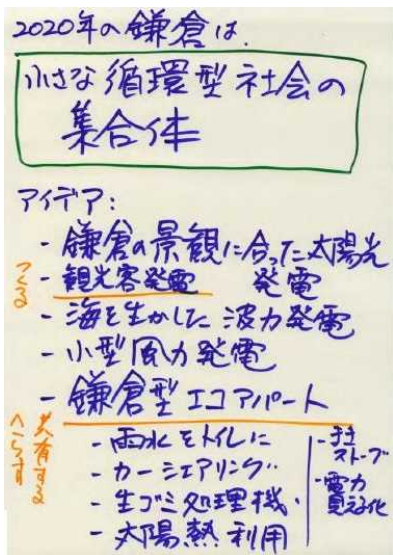 2020年の鎌倉は
小さな循環型社会の
集合体
アイデア:
- 鎌倉の景観に合った太陽光
発電
つくる
- 観光客発電
- 海を生かした波力発電
- 小型風力発電
- 鎌倉型エコアパート
共有する
へらす
- 雨水をトイレに
- カーシェアリング
- 生ゴミ処理機
- 太陽熱利用
ストーブ
- 電力
見える化